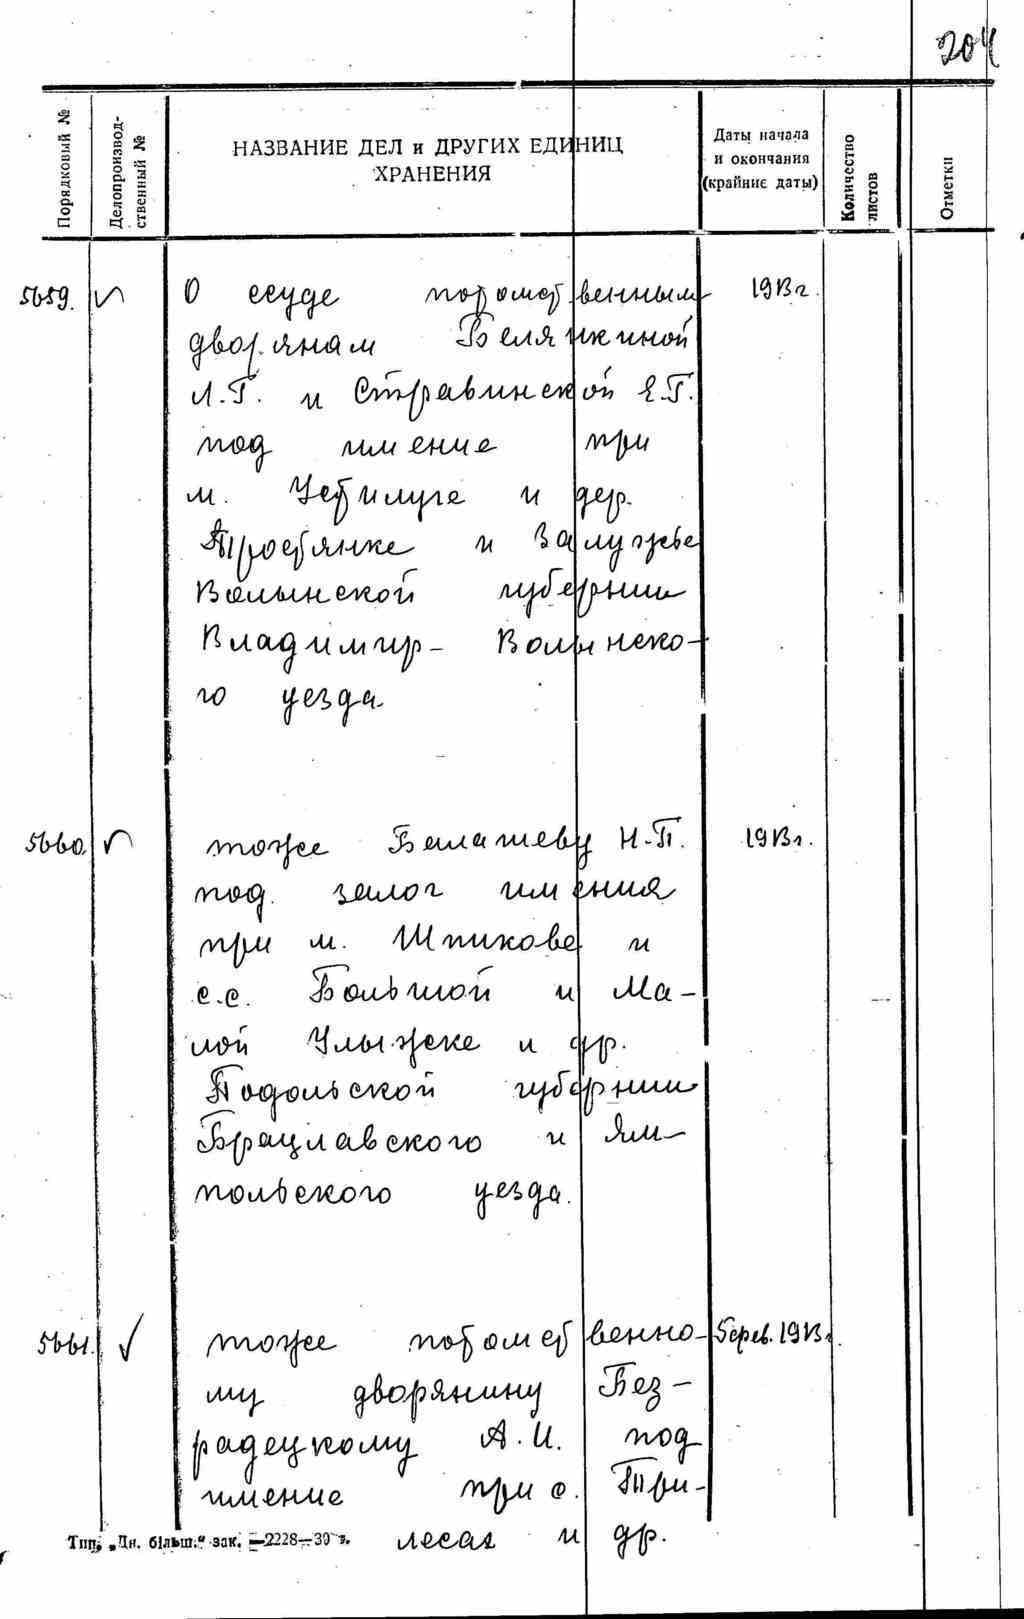 204
Порядковый №
Делопроизвод-
ственный №
НАЗВАНИЕ ДЕЛ и ДРУГИХ ЕДИНИЦ
ХРАНЕНИЯ
Даты начала
и окончания
(крайние даты)
Количество
листов
Отметки
5659. О ссуде потомственным 1913 г.
дворянам Белянкиной
Л.Г. и Стравинской Е.Г.
под имение при
м. Устилуге и дер.
Тростянке и Залужье
Волынской губернии
Владимир- Волынско-
го уезда
5660. тоже Балашеву Н.П. 1913 г.
под залог имения
при м. Шпикове и
с.с. Большой и Ма-
лой Улыжске и др.
Подольской губернии
Брацлавского и Ям-
польского уезда.
5661. тоже потомственно- 1913 г.
му дворянину Без-
радецкому А.И. под
имение при с. Три-
лесах и др.
Тип. „Дн. більш.“ зак. —2228—39 г.